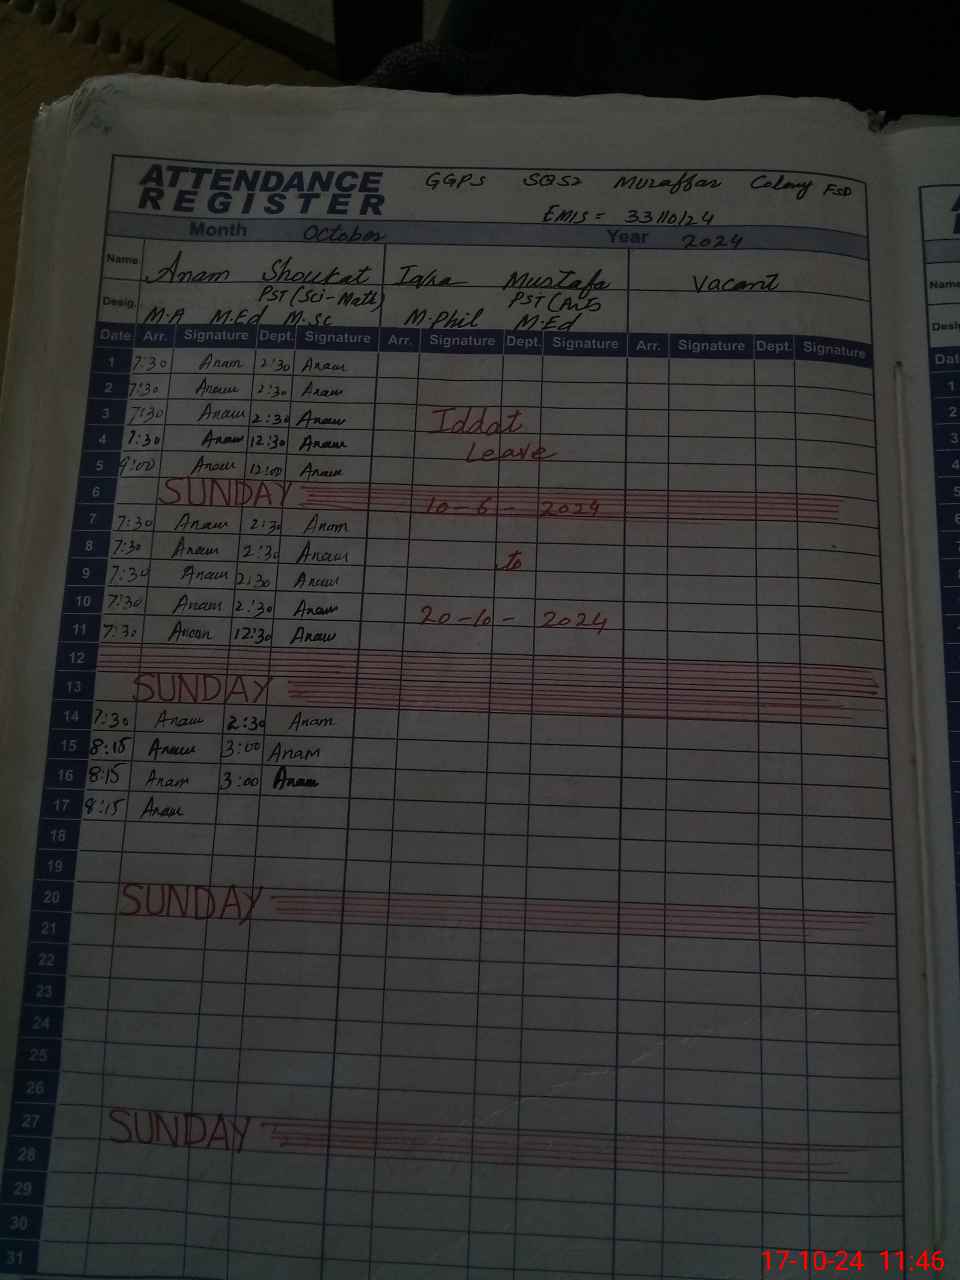 ATTENDANCE REGISTER GGPS SQS2 Muzaffar Colony FSD
EMIS = 33110124
Month October Year 2024
Name Anam Shoukat Iqra Mustafa Vacant
Desig. PST (Sci-Math) PST (Arts
M.A M.Ed M.Sc M.Phil M.Ed
Date Arr. Signature Dept. Signature Arr. Signature Dept. Signature Arr. Signature Dept. Signature
1 7:30 Anam 2:30 Anam
2 7:30 Anam 2:30 Anam
3 7:30 Anam 2:30 Anam Iddat
4 7:30 Anam 12:30 Anam Leave
5 9:00 Anam 12:00 Anam
6 SUNDAY 10-6-2024
7 7:30 Anam 2:30 Anam
8 7:30 Anam 2:30 Anam to
9 7:30 Anam 2:30 Anam
10 7:30 Anam 2:30 Anam 20-10-2024
11 7:30 Anam 12:30 Anam
12
13 SUNDAY
14 7:30 Anam 2:30 Anam
15 8:15 Anam 3:00 Anam
16 8:15 Anam 3:00 Anam
17 8:15 Anam
18
19
20 SUNDAY
21
22
23
24
25
26
27 SUNDAY
28
29
30
31
Name
Desig
Dat
1
2
3
4
5
6
17-10-24 11:46